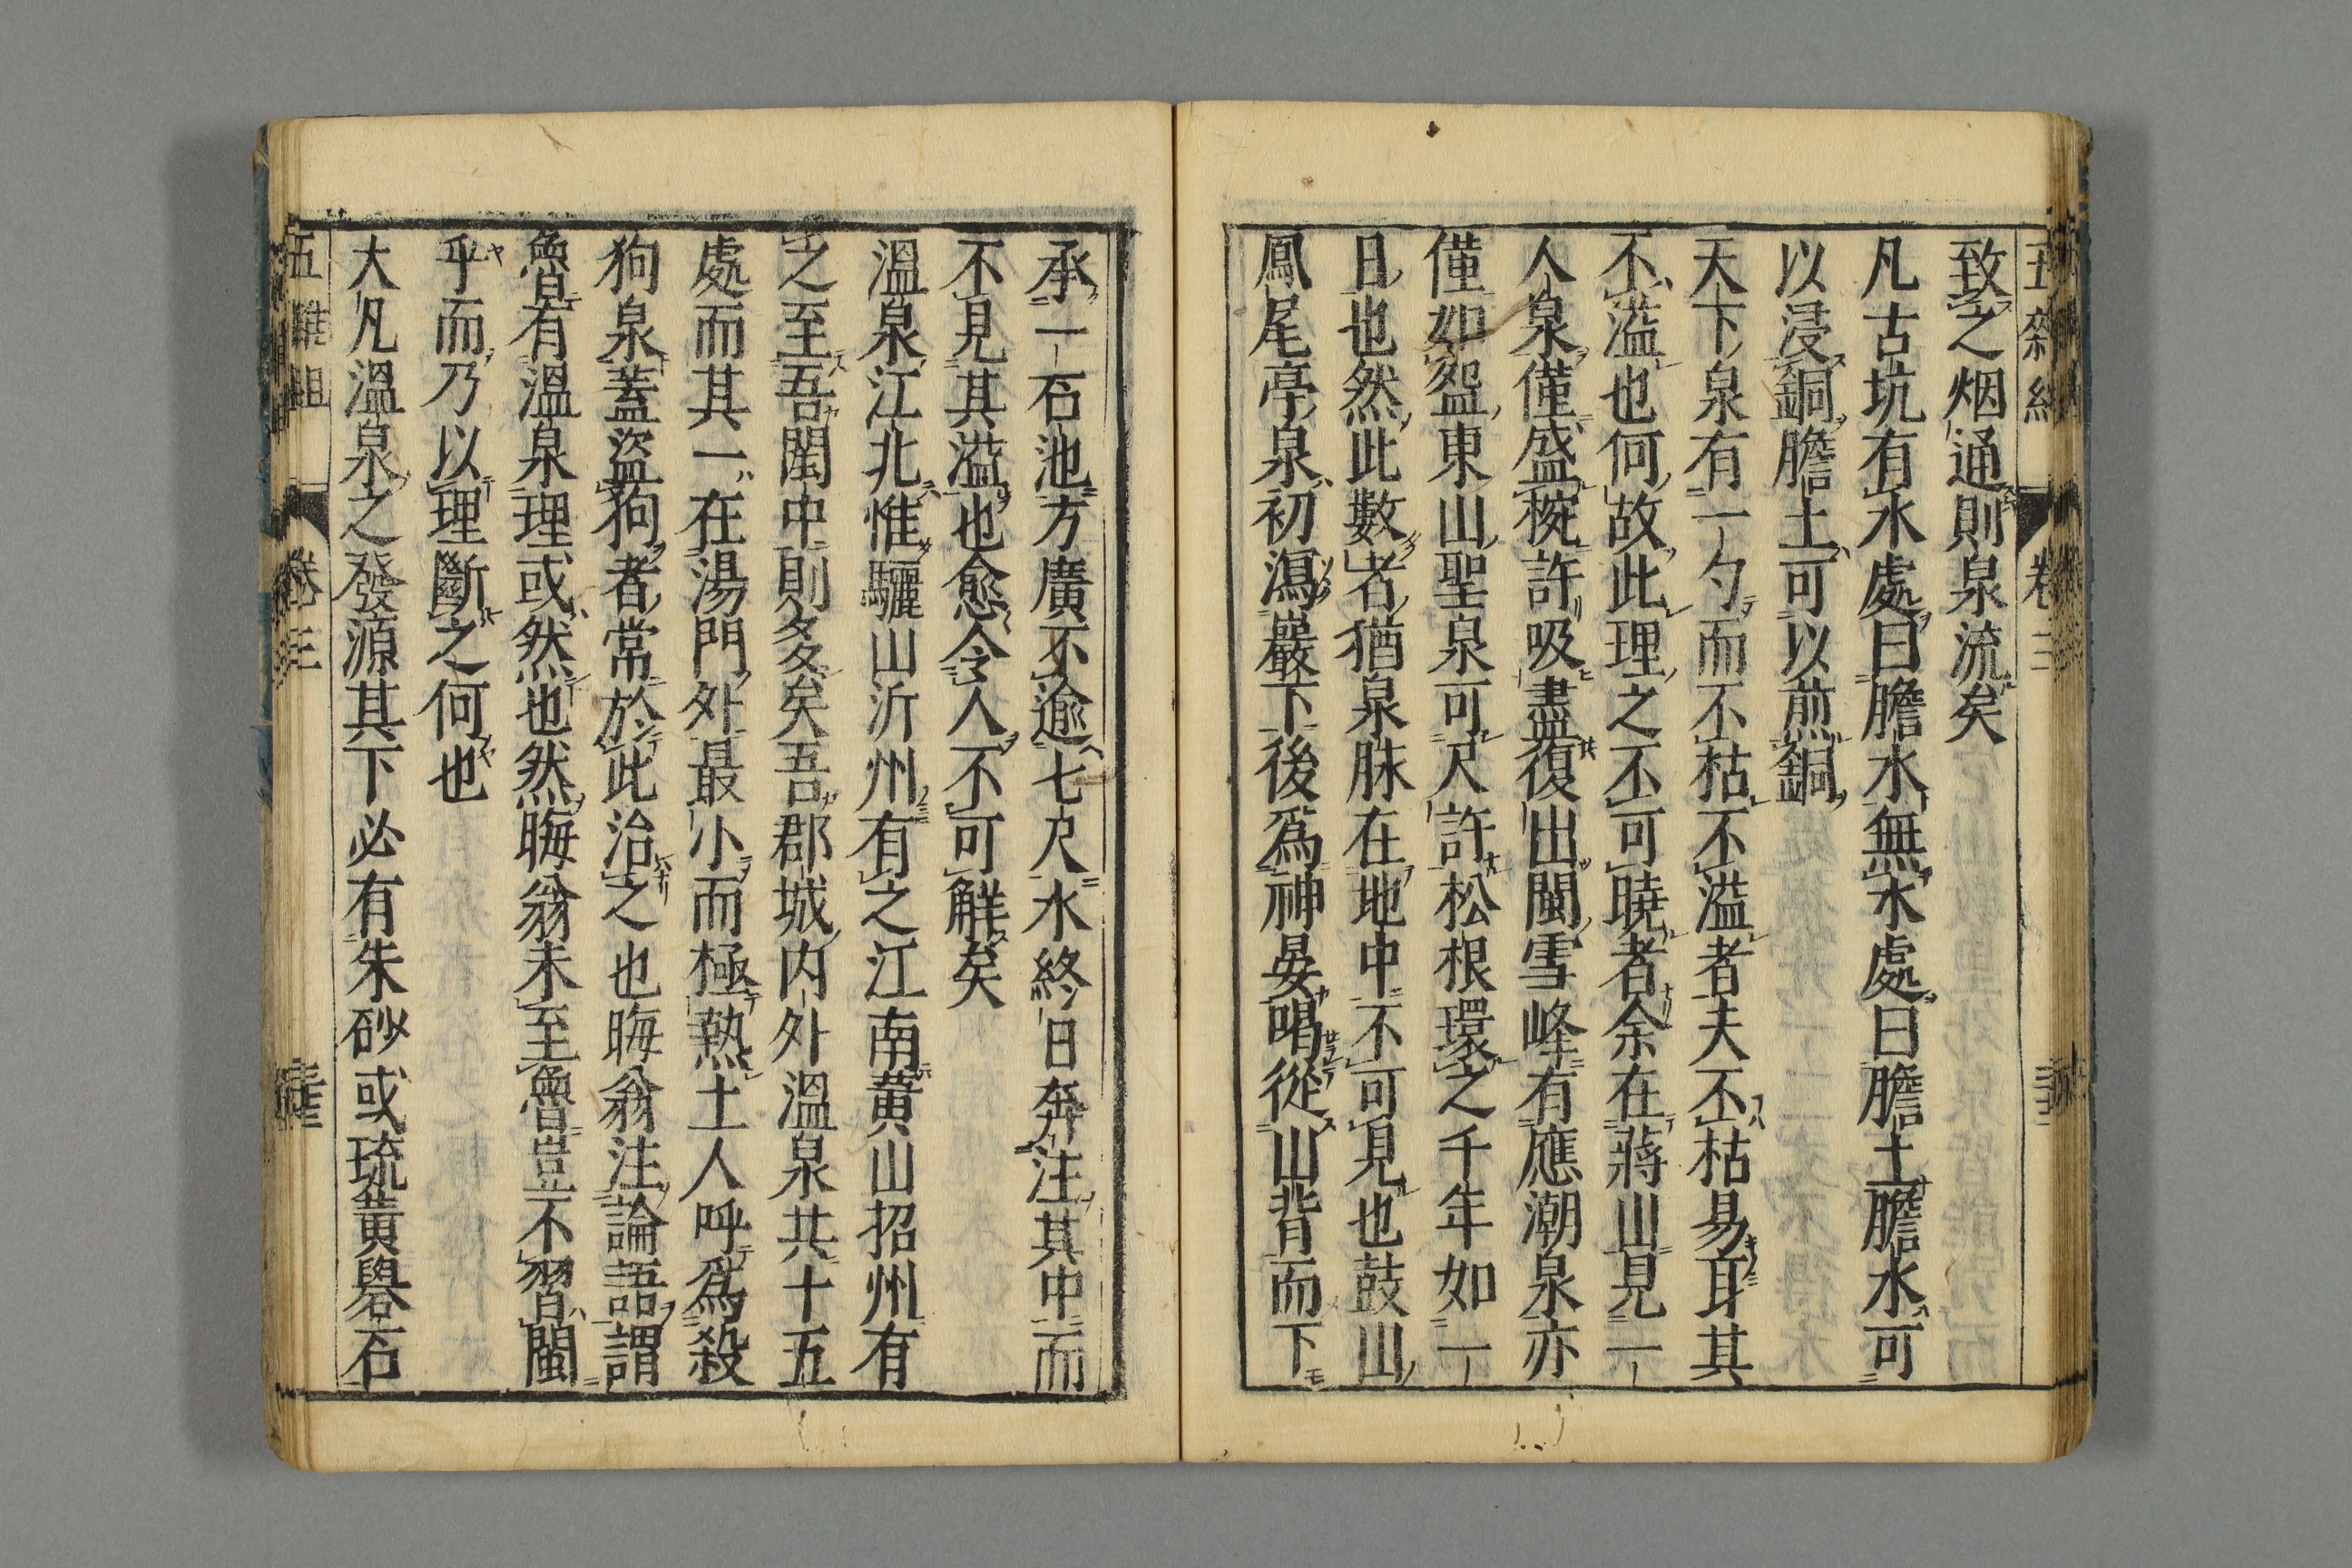 致之烟通則泉流矣
凡古坑有水處曰膽水無水處曰膽土膽水可
以浸銅膽土可以煎銅
天下泉有一勺而不枯不溢者夫不枯易耳其
不溢也何故此理之不可曉者余在蔣山見一
人泉僅盛椀許吸盡復出閩雪峰有應潮泉亦
僅如盌東山聖泉可尺許松根環之千年如一
日也然此數者猶泉脉在地中不可見也鼓山
鳳尾亭泉初瀉巖下後爲神晏喝從山背而下
承一石池方廣不逾七尺水終日奔注其中而
不見其溢也愈令人不可解矣
溫泉江北惟驪山沂州有之江南黃山招州有
之至吾閩中則多矣吾郡城内外溫泉共十五
處而其一在湯門外最小而極熱土人呼爲殺
狗泉蓋盜狗者常於此治之也晦翁注論語謂
魯有溫泉理或然也然晦翁未至魯豈不習閩
乎而乃以理斷之何也
大凡溫泉之發源其下必有朱砂或琉黃礜石
五雜組 卷三